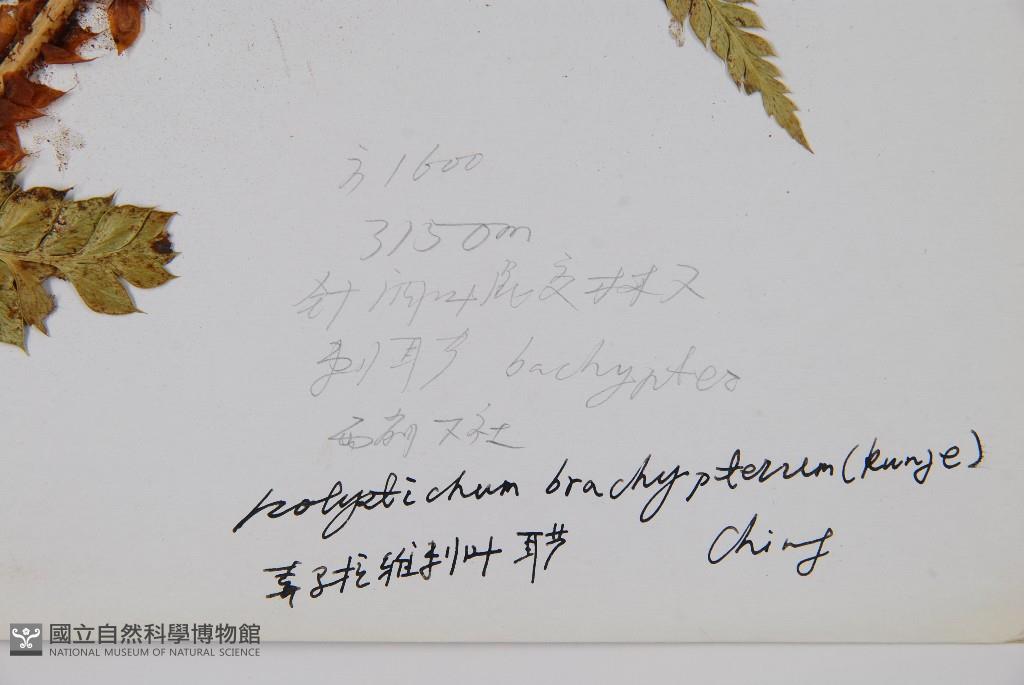 方1600
3150m
针阔叶混交林又
刺耳 bachypter
polystichum brachypterum (kunze)
Ching
喜子拉維刺叶耳
國立自然科學博物館
NATIONAL MUSEUM OF NATURAL SCIENCE